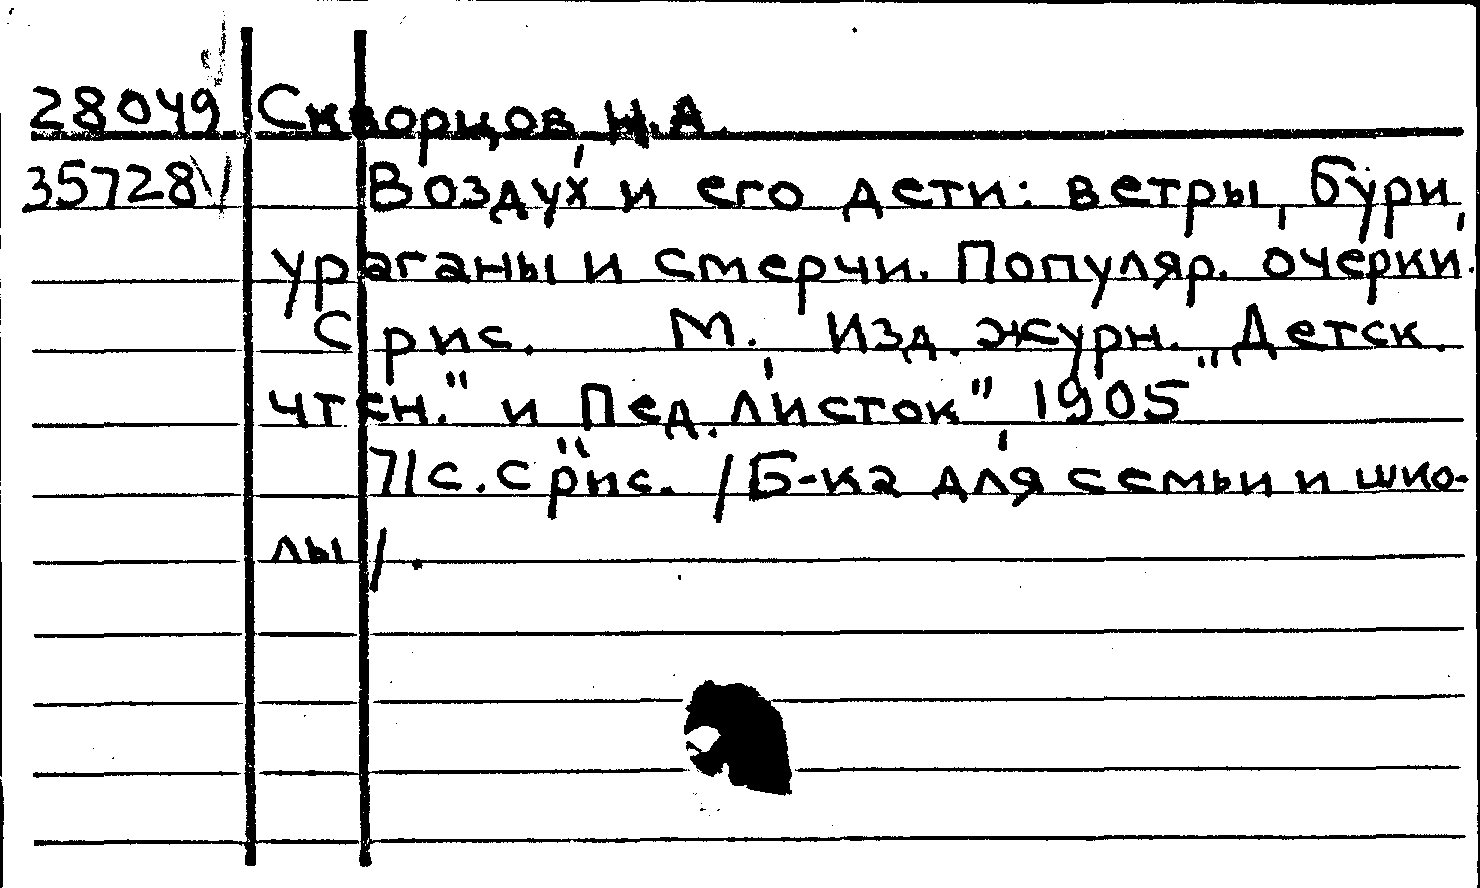 28049 Скворцов, Н.А.
35728 Воздух и его дети: ветры, бури,
ураганы и смерчи. Популяр. очерки.
С рис. М., Изд. журн. „Детск.
чтен." и „Пед. листок", 1905
71с. с рис. /Б-ка для семьи и шко-
лы/.